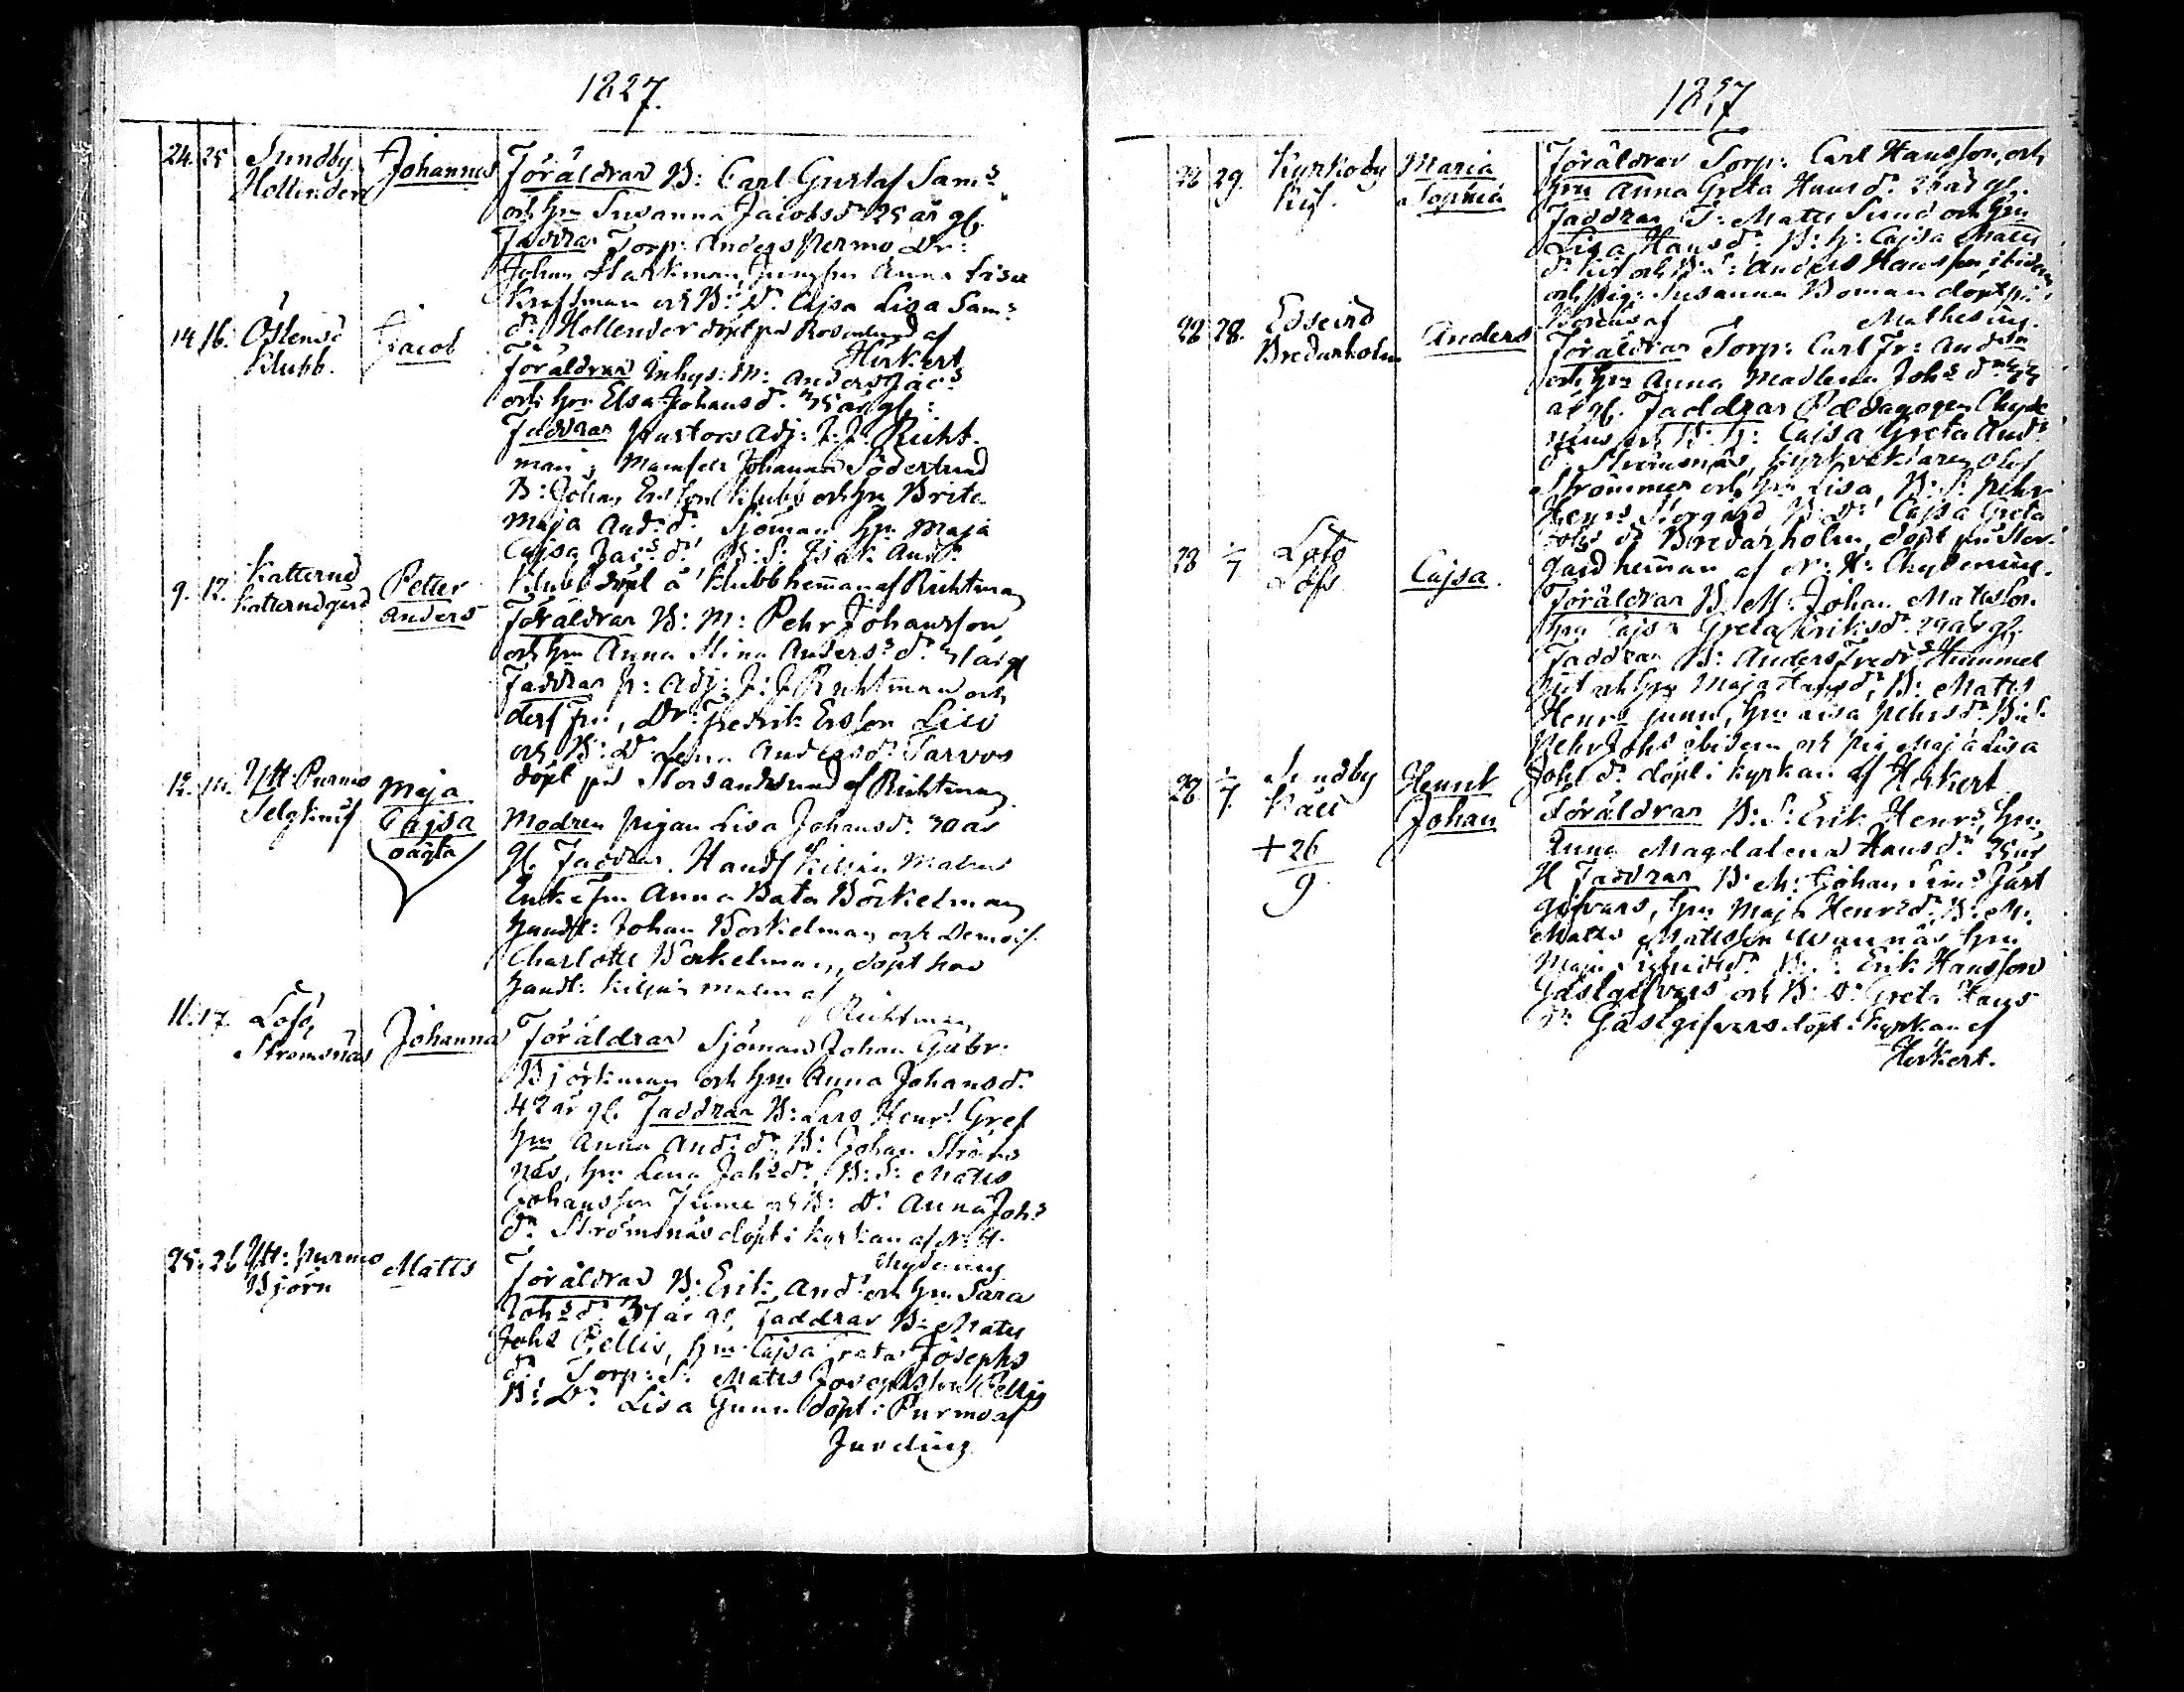 1827.
24. 25 Sundby Johannes Föräldrar B: Carl Gustaf Sam:s
Hollender och h:u Susanna Jacobsd:r 25 år gl.
Faddrar Torp: Anders Permo Dr:
Johan Starkman, Jungfru Anna Lisa
Kraftman och B: D: Cajsa Lisa Sam:s
d:r Hollender döpt på Rosenlund af
Herkert
14. 16. Östensö Jacob Föräldrar Inhys: M: Anders Jac:s
Klubb. och h:u Elsa Johansd:r 35 år gl:
Faddrar Pastors Adj: J: J: Richt
man; Mamsell Johanna Söderlund
B: Johan Ersson Klubb och h:u Brita
Maja And:s d:r Sjöman h:u Maja
Cajsa Jac:s d:r B: S: Isak And:s
Klubb döpt å Klubb hemman af Richtman
9. 12. Katternö Petter Anders Föräldrar B: M: Pehr Johansson
Katternögård och h:u Anna Stina Anders:s d:r 31 år gl
Faddrar P: Adj: J: J Richtman och
dess Fru, Dr: Fredrik Ersson Lico
och B: D: Lena Andersd:r Sarvos
döpt på Storsandsund af Richtman.
12. 14. Ytt: Purmo Maja Cajsa oägta Modren pigan Lisa Johansd:r 30 år
gl. Faddrar. Handl Kiljin Malms
Enkefru Anna Bata Böckelman
Handl: Johan Böckelman och Demois:
Charlotte Böckelman, döpt hos
Handl: Kiljin Malm af
Richtman
11. 17. Lofö, Johanna Föräldrar Sjöman Johan Gabr:
Strömsnäs Björkman och h:u Anna Johansd:r
42 år gl. Faddrar B: Lars Henr:s Gref
h:u Anna And:s d:r, B: Johan Ströms
näs, h:u Lena Joh:s d:r, B: S: Matts
Johansson och B: D: Anna Joh:s
d:r Strömsnäs döpt i kyrkan af N: H:
Chydenius
25. 26 Ytt: Purmo Matts Föräldrar B: Erik And:s och h:u Sara
Björn Joh:s d:r 37 år gl. Faddrar B: Matts
Joh:s Pellis, h:u Cajsa Josephs
d:r, Torp: S: Matts Josephsson Pellis
B: D: Lisa Gunn döpt i Purmo af
Juveling
1827
28 29. Kyrkoby Maria Sophia Föräldrar Torp: Carl Hansson, och
h:u Anna Greta Hansd:r år gl.
Faddrar S: Matts Sund och h:u
Lisa Hansd:r B: h: Cajsa Matts
d:r och B: S: Anders Hansson ibidem
och pig: Susanna Boman döpt på
Bonäs af Mathesius.
28 28. Edsevö Anders Föräldrar Torp: Carl Fr: Andsn
Bredarholm och h:u Anna Madlena Joh:s d:r
år gl. Faddrar Pædagogen Chyde
nius och B: h: Cajsa Greta And:s
d:r Strömsnäs, kyrkväktaren Olof
Strömmer och h:u Lisa, B: S: Pehr
Henrs Storgård, B: D: Cajsa Greta
Johs d:r Bredarholm, döpt på Stor
gård hemman af N: H: Chydenius.
28 1/7 Lofö Cajsa. Föräldrar B: M: Johan Mattsson
h:u Cajsa Greta Eriksd:r 29 år gl.
Faddrar B: Anders Fredr:s Hummel
och h:u Maja Hansd:r, B: Matts
Henrs h:u Lisa Pehrsd:r B: S:
Pehr Johs ibidem och pig Maja Lisa
Johs d:r döpt i kyrkan af Herkert
28. 1/7. Sundby Henrik Johan Föräldrar B: S: Erik Henrs, h:u
Käll Anna Magdalena Hansd:r 25 år
+ 26/9. gl Faddrar B: M: Johan Sim:s Gäst
gifvars, h:u Maja Henrsd:r B: M:
Matts Mattsson Wannäs h:u
Maja Sigfridsd:r B: S: Erik Hansson
Gästgifvars och B: D: Greta Hans
d:r Gästgifvars döpt i kyrkan af
Herkert.